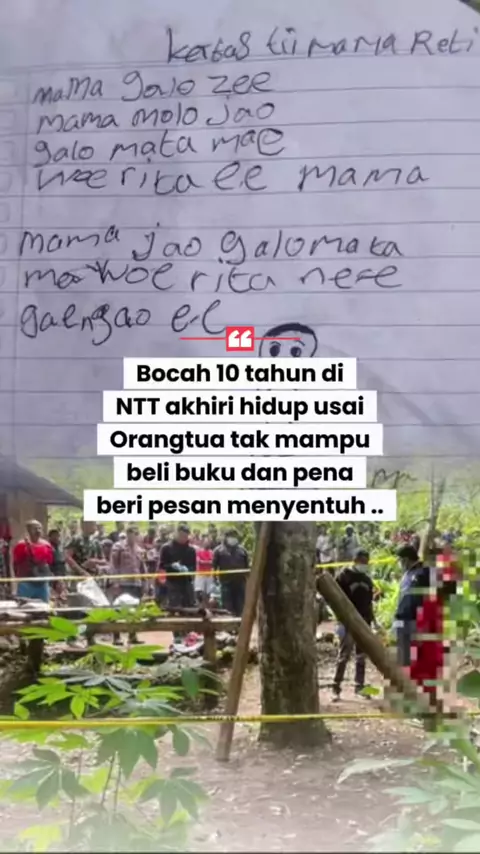 kertas tii mama Reti
mama galo zee
mama molo jao
galo mata mae
woe rita ee mama
mama jao galo mata
mae woe rita ne'e
gae ngao ee
Bocah 10 tahun di
NTT akhiri hidup usai
Orangtua tak mampu
beli buku dan pena
beri pesan menyentuh ..